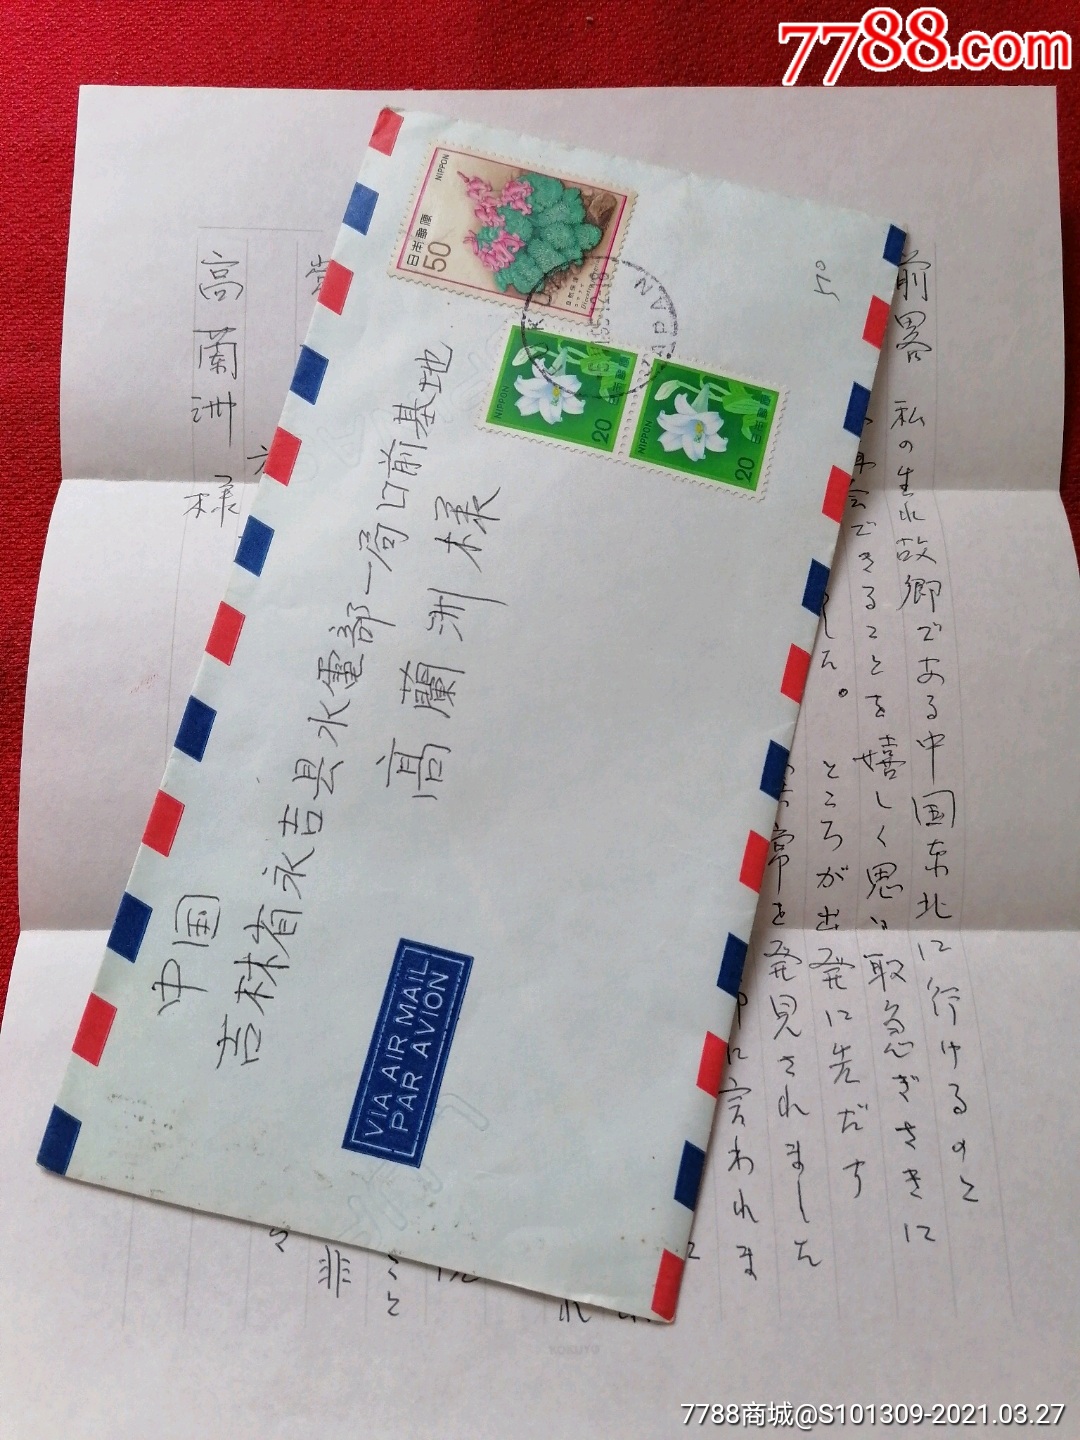 7788.com
NIPPON
日本郵便
50
自然保護
NIPPON
日本郵便
20
NIPPON
日本郵便
20
JAPAN
50
中国
吉林省永吉县水電部一局口前基地
高蘭洲様
VIA AIR MAIL
PAR AVION
前略 私の生れ故郷である中国东北に行けるのと
再会できることを嬉しく思い取急ぎさきに
した。ところが出発に先だち
常を発見されました
に言われま
高蘭洲様
7788商城@S101309-2021.03.27